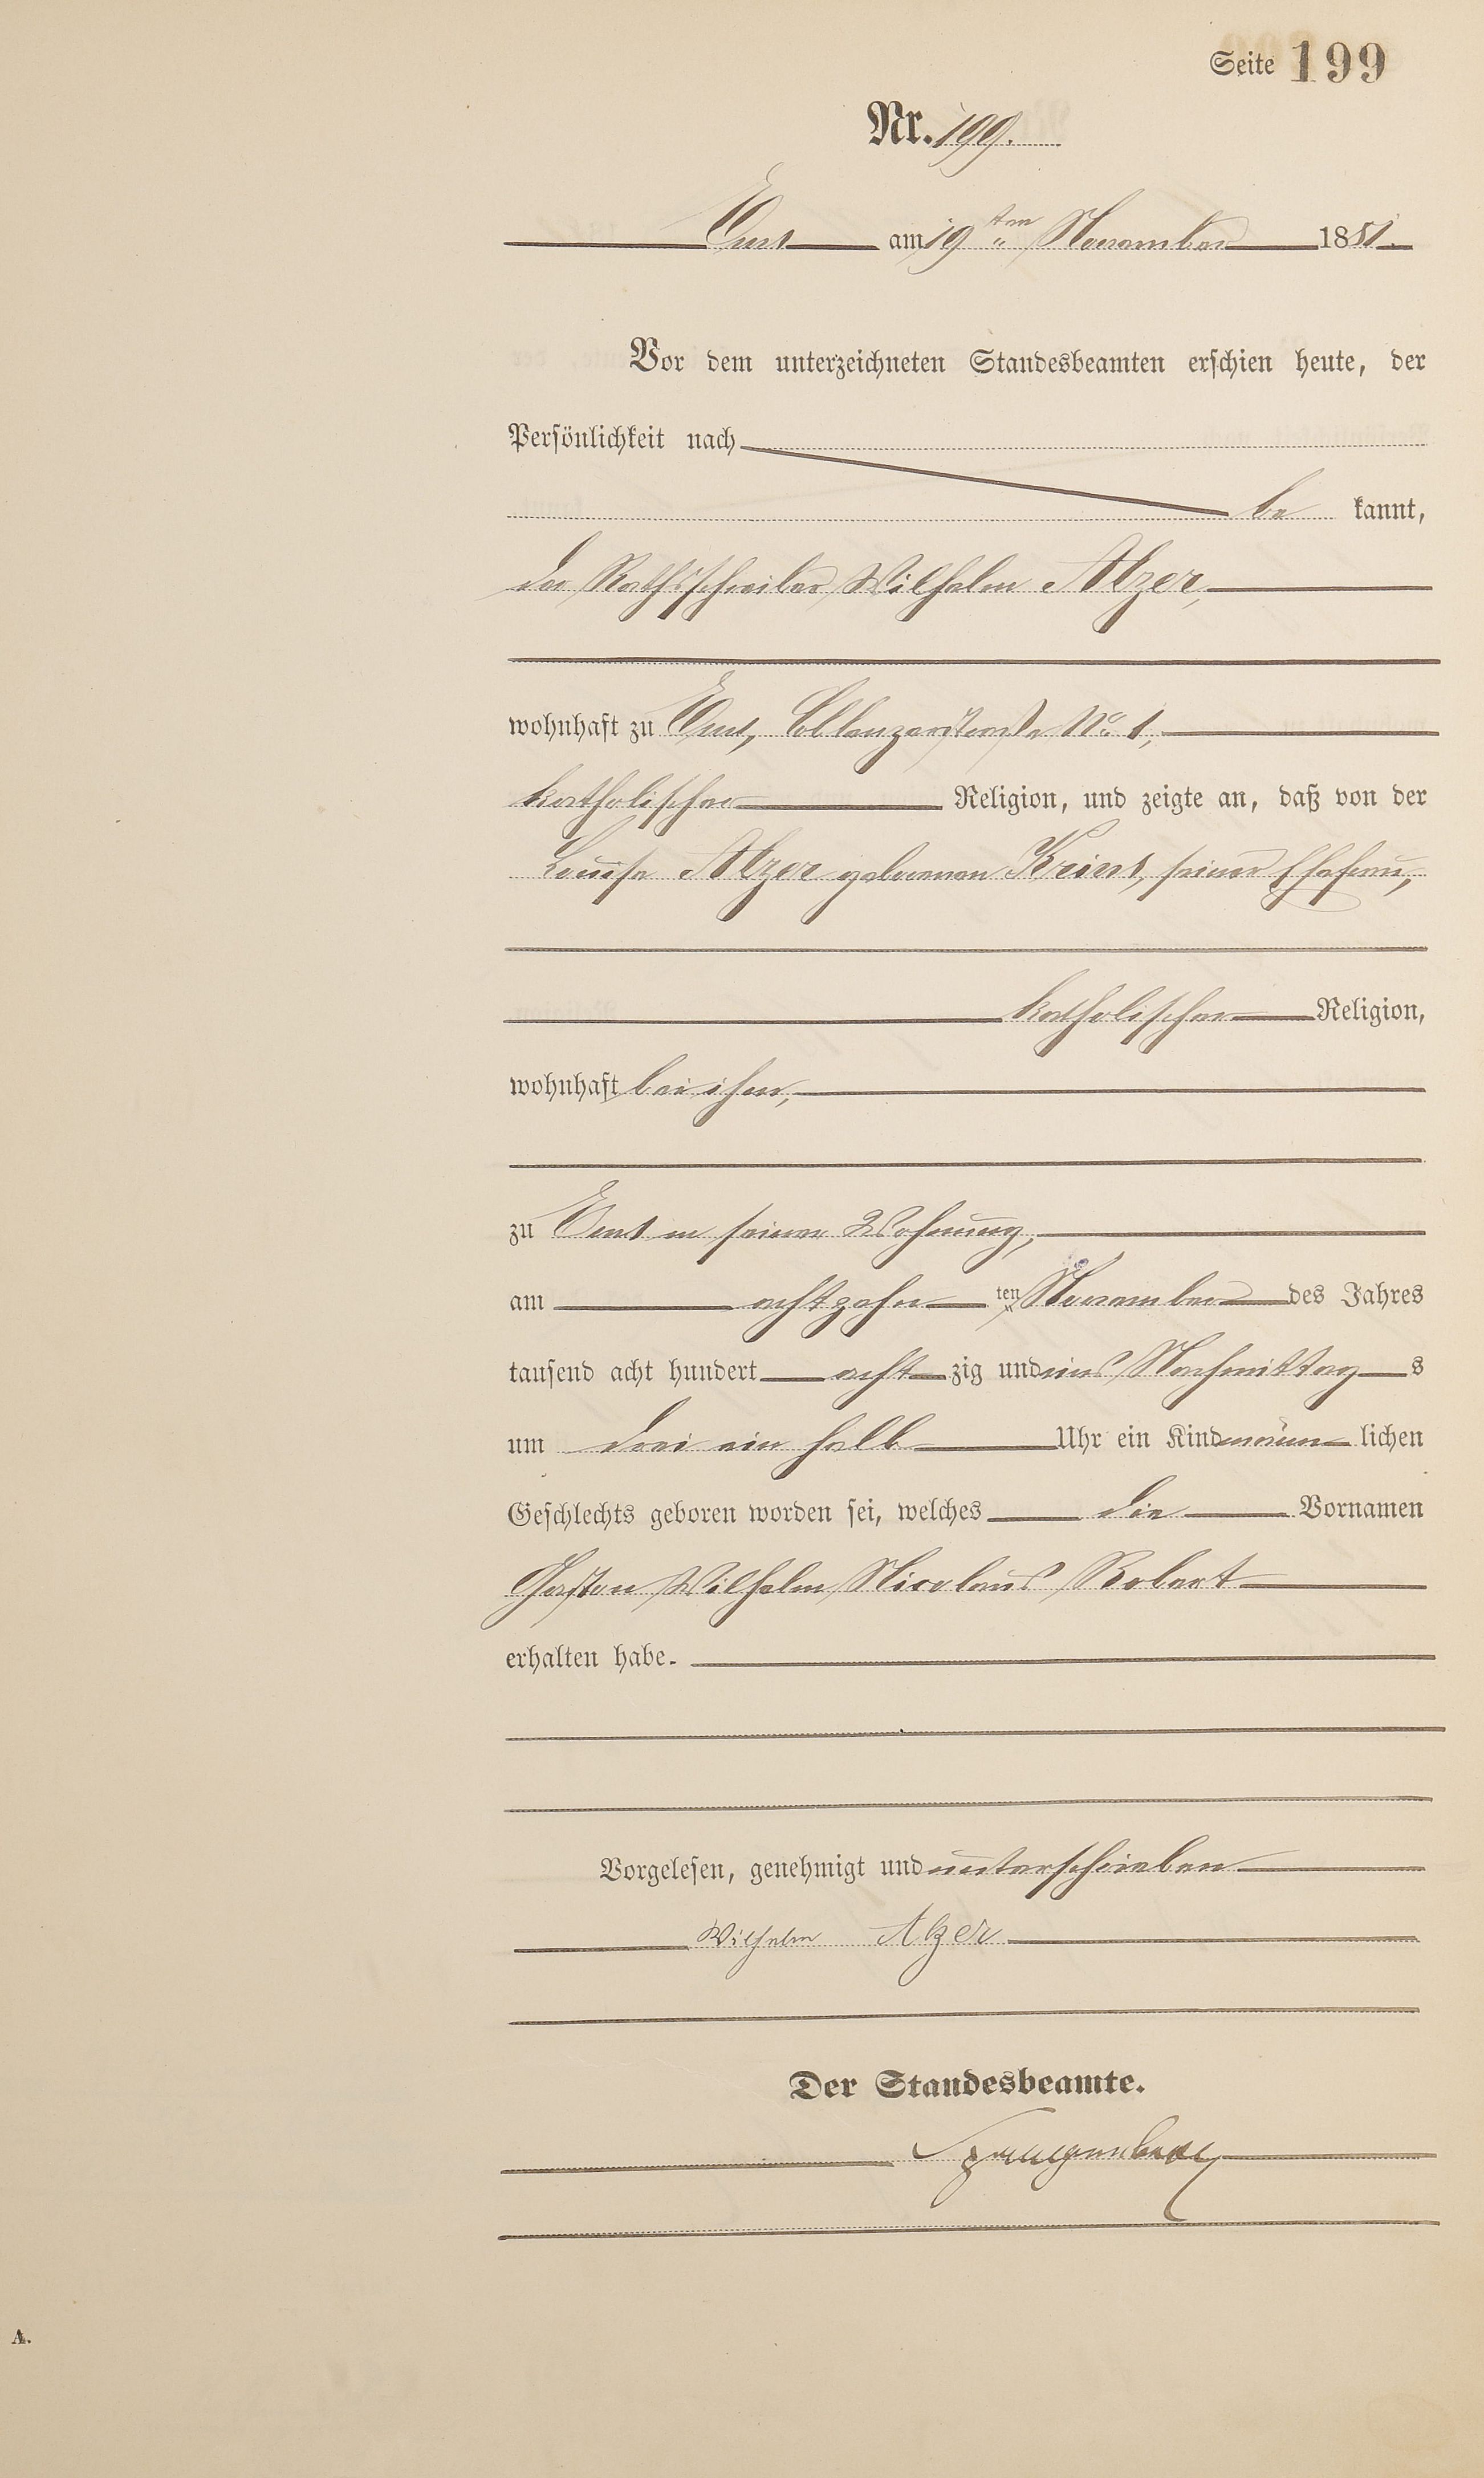 Seite 199
Nr. 199.
Ems am 19ten November 1881.
Vor dem unterzeichneten Standesbeamten erschien heute, der
Persönlichkeit nach
be kannt,
der Rathsschreiber Wilhelm Alzer,
wohnhaft zu Ems, Coblenzerstraße No. 1,
katholischer Religion, und zeigte an, daß von der
Louise Alzer geborenen Krins, seiner Ehefrau,
katholischer Religion,
wohnhaft bei ihm,
zu Ems in seiner Wohnung,
am achtzehn ten November des Jahres
tausend acht hundert acht zig und eins Nachmittag s
um drei ein halb Uhr ein Kind männ lichen
Geschlechts geboren worden sei, welches die Vornamen
Gaston Wilhelm Nicolaus Robert
erhalten habe.
Vorgelesen, genehmigt und unterschrieben
Wilhelm Alzer
Der Standesbeamte.
A.